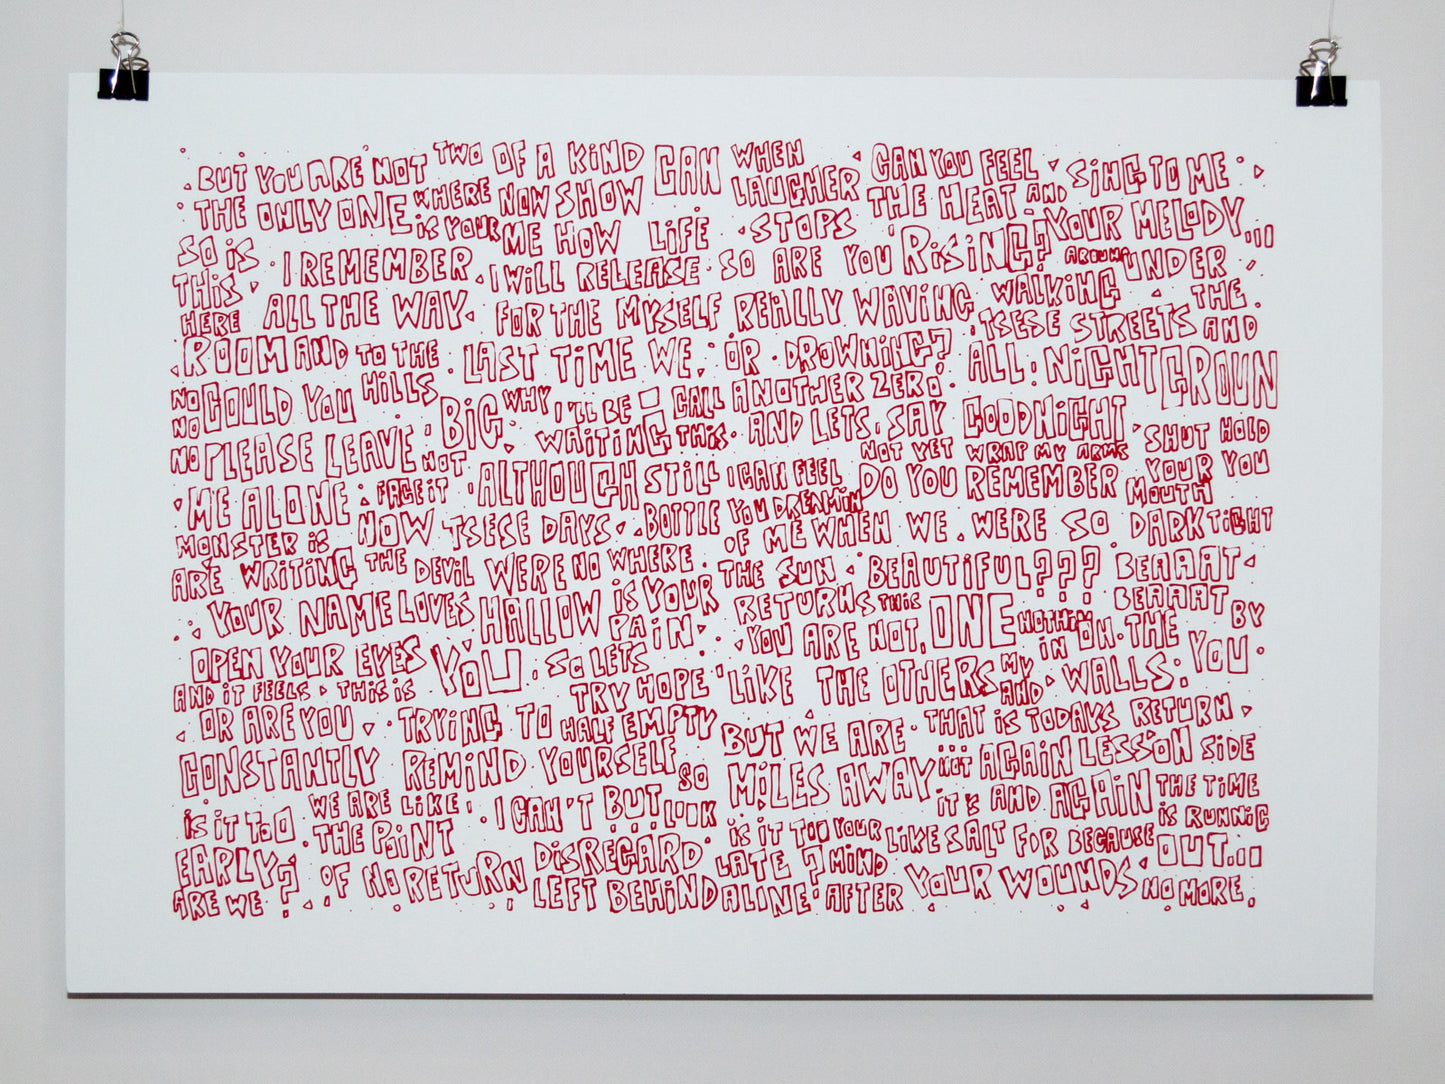 BUT YOU ARE NOT TWO OF A KIND CAN WHEN CAN YOU FEEL SING TO ME
THE ONLY ONE WHERE NOW SHOW LAUGHER THE HEAT AND YOUR MELODY...
SO IS I REMEMBER IS YOUR ME HOW LIFE STOPS RISING? AROUND UNDER
THIS I WILL RELEASE SO ARE YOU WALKING THE
HERE ALL THE WAY FOR THE MYSELF REALLY WAVING TSESE STREETS AND
ROOM AND TO THE LAST TIME WE OR DROWNING? ALL NIGHT GROUN
NO COULD YOU HILLS BIG WHY I'LL BE CALL ANOTHER ZERO
NO PLEASE LEAVE NOT WAITING THIS AND LETS SAY GOODNIGHT SHUT HOLD
NO ME ALONE FACE IT ALTHOUGH STILL I CAN FEEL NOT YET WRAP MY ARMS YOUR YOU
MONSTER IS NOW TSESE DAYS BOTTLE YOU DREAMIN DO YOU REMEMBER MOUTH
ARE WRITING THE DEVIL WERE NO WHERE OF ME WHEN WE WERE SO DARK TIGHT
YOUR NAME LOVES HALLOW IS YOUR THE SUN BEAUTIFUL??? BEAAAT
OPEN YOUR EYES YOU PAIN RETURNS THIS ONE NOTHIN BEAAAT BY
AND IT FEELS THIS IS SO LETS YOU ARE NOT, IN ON THE YOU
OR ARE YOU TRYING TO TRY HOPE LIKE THE OTHERS MY AND WALLS
CONSTANTLY REMIND YOURSELF HALF EMPTY BUT WE ARE THAT IS TODAYS RETURN
IS IT TOO WE ARE LIKE I CAN'T BUT SO LOOK MILES AWAY NOT AGAIN LESSON SIDE
EARLY? THE POINT DISREGARD IS IT TOO YOUR IT'S AND AGAIN THE TIME
ARE WE OF NO RETURN LEFT BEHIND LATE? MIND LIKE SALT FOR BECAUSE IS RUNNIG
ALINE AFTER YOUR WOUNDS OUT...
NO MORE